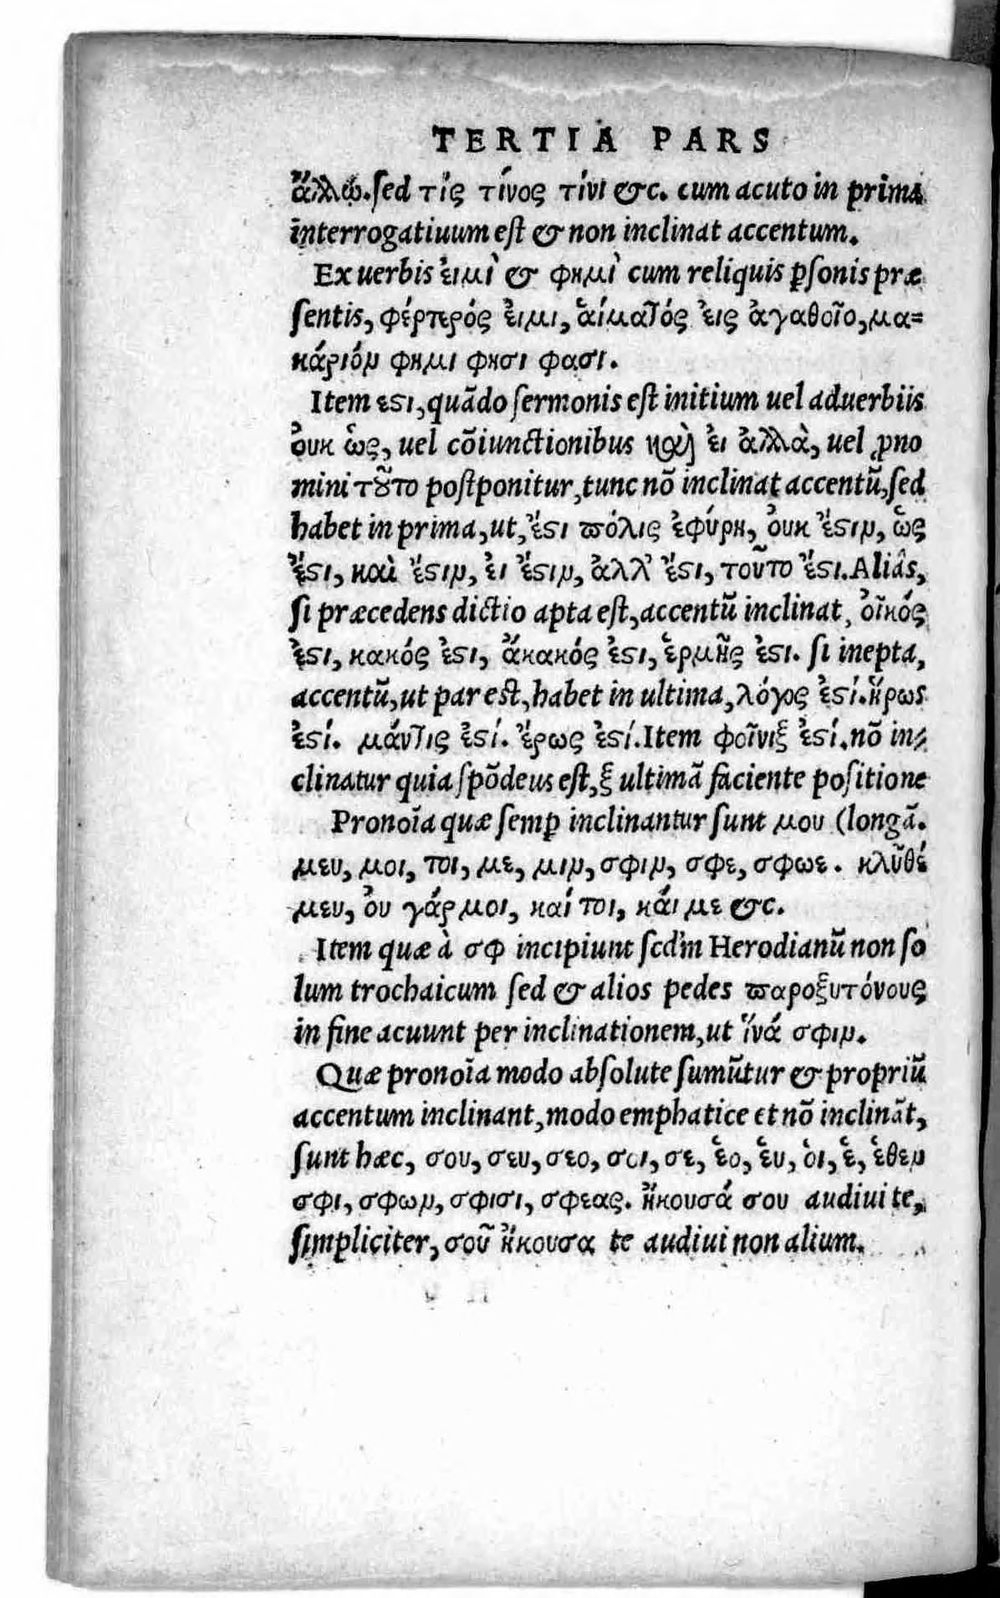 TERTIA PARS
ἄλλῳ. sed τίς τίνος τίνι &c. cum acuto in prima
interrogatiuum est & non inclinat accentum.
Ex uerbis ἐιμὶ & φημὶ cum reliquis ꝑsonis præ
sentis, φέρτερός ἐιμι, ἁίματός ἐις ἀγαθοῖο, μα=
κάριόν φημι φησι φασι.
Item εϛι, quãdo sermonis est initium uel aduerbiis
ὀυκ ὡς, uel cõiunctionibus καὶ ἐι ἀλλὰ, uel ꝓno
mini τȣτο postponitur, tunc nõ inclinat accentũ, sed
habet in prima, ut, ἔϛι πόλις ἐφύρη, ὀυκ ἔϛιν, ὡς
ἔϛι, καὶ ἔϛιν, ἐι ἔϛιν, ἀλλ' ἔϛι, τοῦτο ἔϛι. Aliâs,
si præcedens dictio apta est, accentũ inclinat, ὀῖκός
ἐϛι, κακός ἐϛι, ἄκακός ἐϛι, ἑρμῆς ἐϛι. si inepta,
accentũ, ut par est, habet in ultima, λόγος ἐϛί. ἥρως
ἐϛί. μάντις ἐϛί. ἔρως ἐϛί. Item φοῖνιξ ἐϛί. nõ in-
clinatur quia spõdeus est, ξ ultimã faciente positione
Pronoĩa quæ semꝑ inclinantur sunt μου (longã.
μευ, μοι, τοι, με, μιν, σφιν, σφε, σφωε. κλῦθέ
μευ, ὀυ γάρ μοι, καί τοι, κάι με &c.
Item quæ à σφ incipiunt scd'm Herodianũ non so
lum trochaicum sed & alios pedes παροξυτόνους
in fine acuunt per inclinationem, ut ἵνά σφιν.
Quæ pronoĩa modo absolute sumũtur & propriũ
accentum inclinant, modo emphatice et nõ inclinãt,
sunt hæc, σου, σευ, σεο, σοι, σε, ἑο, ἑυ, ὁι, ἑ, ἑθεν
σφι, σφων, σφισι, σφεας. ἤκουσά σου audiui te,
simpliciter, σοῦ ἤκουσα te audiui non alium.